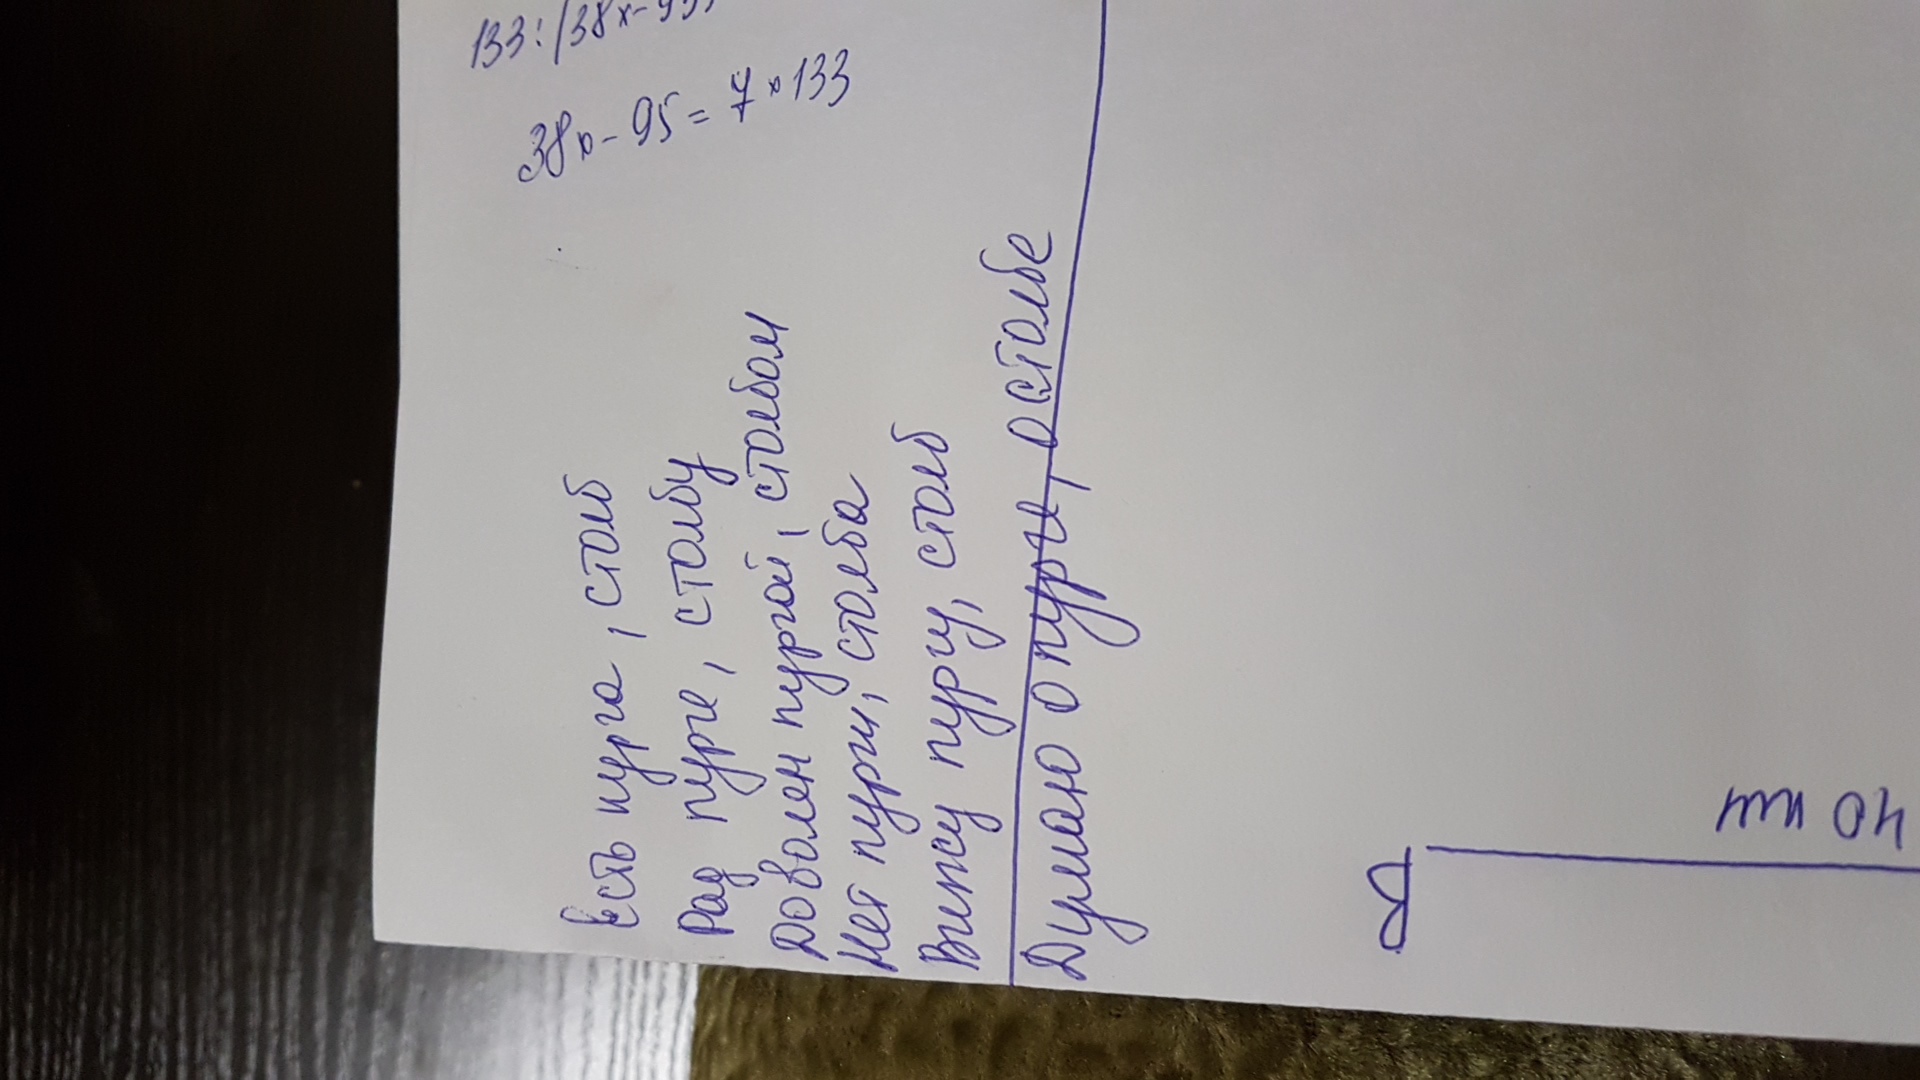 133:(38x-95)
38x-95=7×133
Есть пурга, столб
Рад пурге, столбу
Доволен пургой, столбом
Нет пурги, столба
Вижу пургу, столб
Думаю о пурге, о столбе